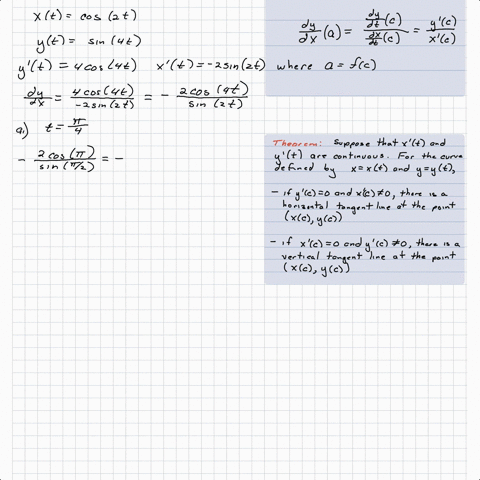 x(t) = cos(2t)
y(t) = sin(4t)
y'(t) = 4cos(4t) x'(t) = -2sin(2t)
dy/dx = 4cos(4t)/-2sin(2t) = - 2cos(4t)/sin(2t)
a) t = π/4
- 2cos(π)/sin(π/2) = -
dy/dx (a) = dy/dt (c) / dx/dt (c) = y'(c)/x'(c)
where a = f(c)
Theorem: Suppose that x'(t) and
y'(t) are continuous. For the curve
defined by x=x(t) and y=y(t),
- if y'(c)=0 and x'(c)≠0, there is a
horizontal tangent line at the point
(x(c), y(c))
- if x'(c)=0 and y'(c)≠0, there is a
vertical tangent line at the point
(x(c), y(c))